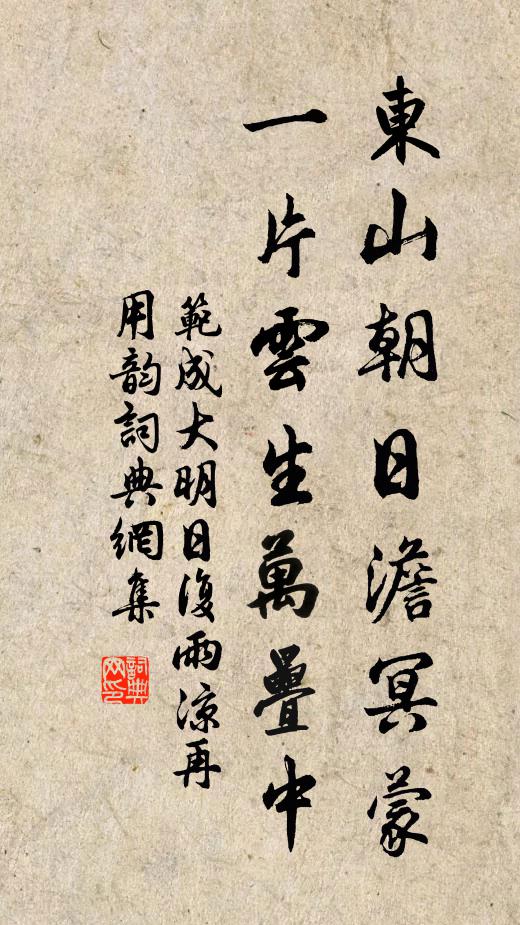 東山朝日澹冥蒙
一片雲生萬疊中
範成大明日復雨凉再
用韵詞典網集
詞典网印